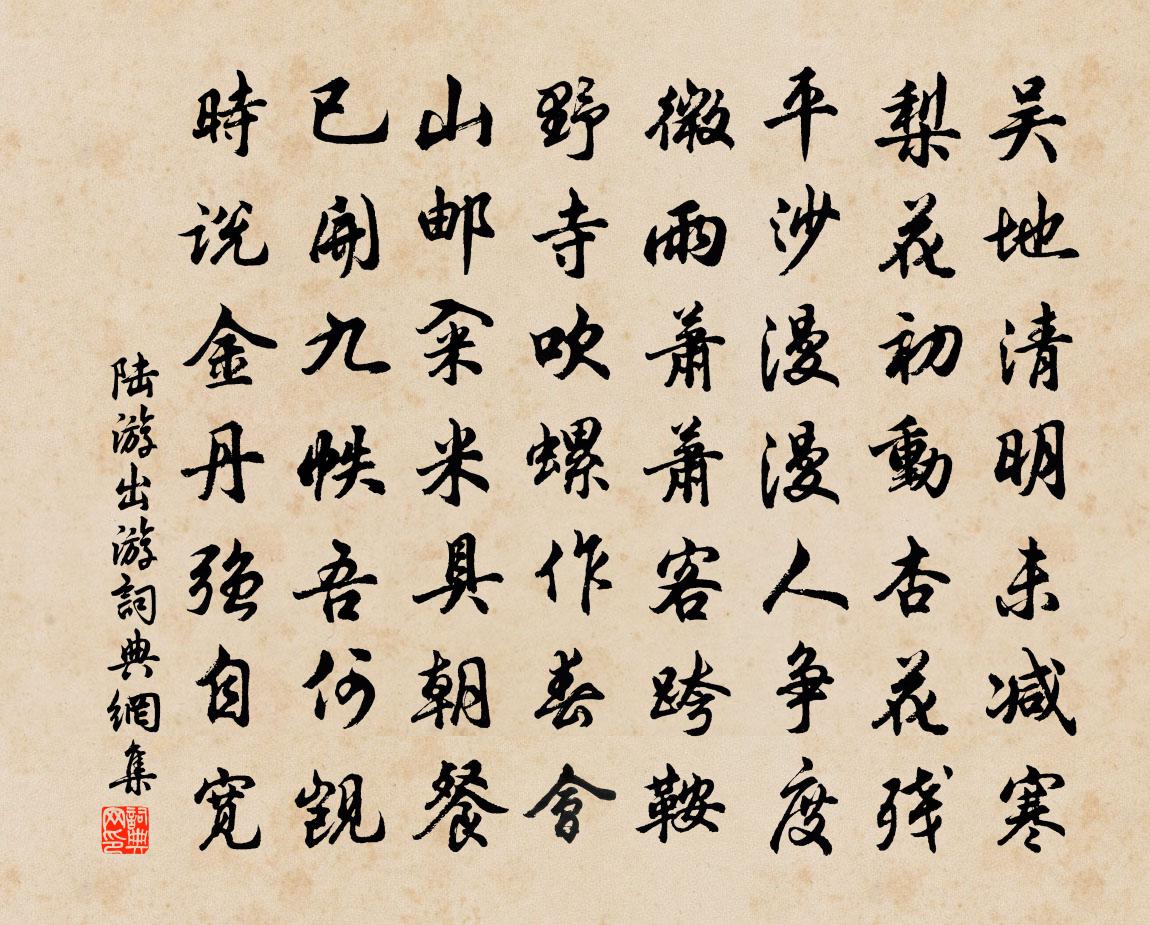 吴地清明未减寒
梨花初動杏花残
平沙漫漫人争度
微雨蕭蕭客跨鞍
野寺吹螺作春會
山邮籴米具朝餐
已開九帙吾何覬
時说金丹强自寬
陆游出游詞典網集
詞典网印